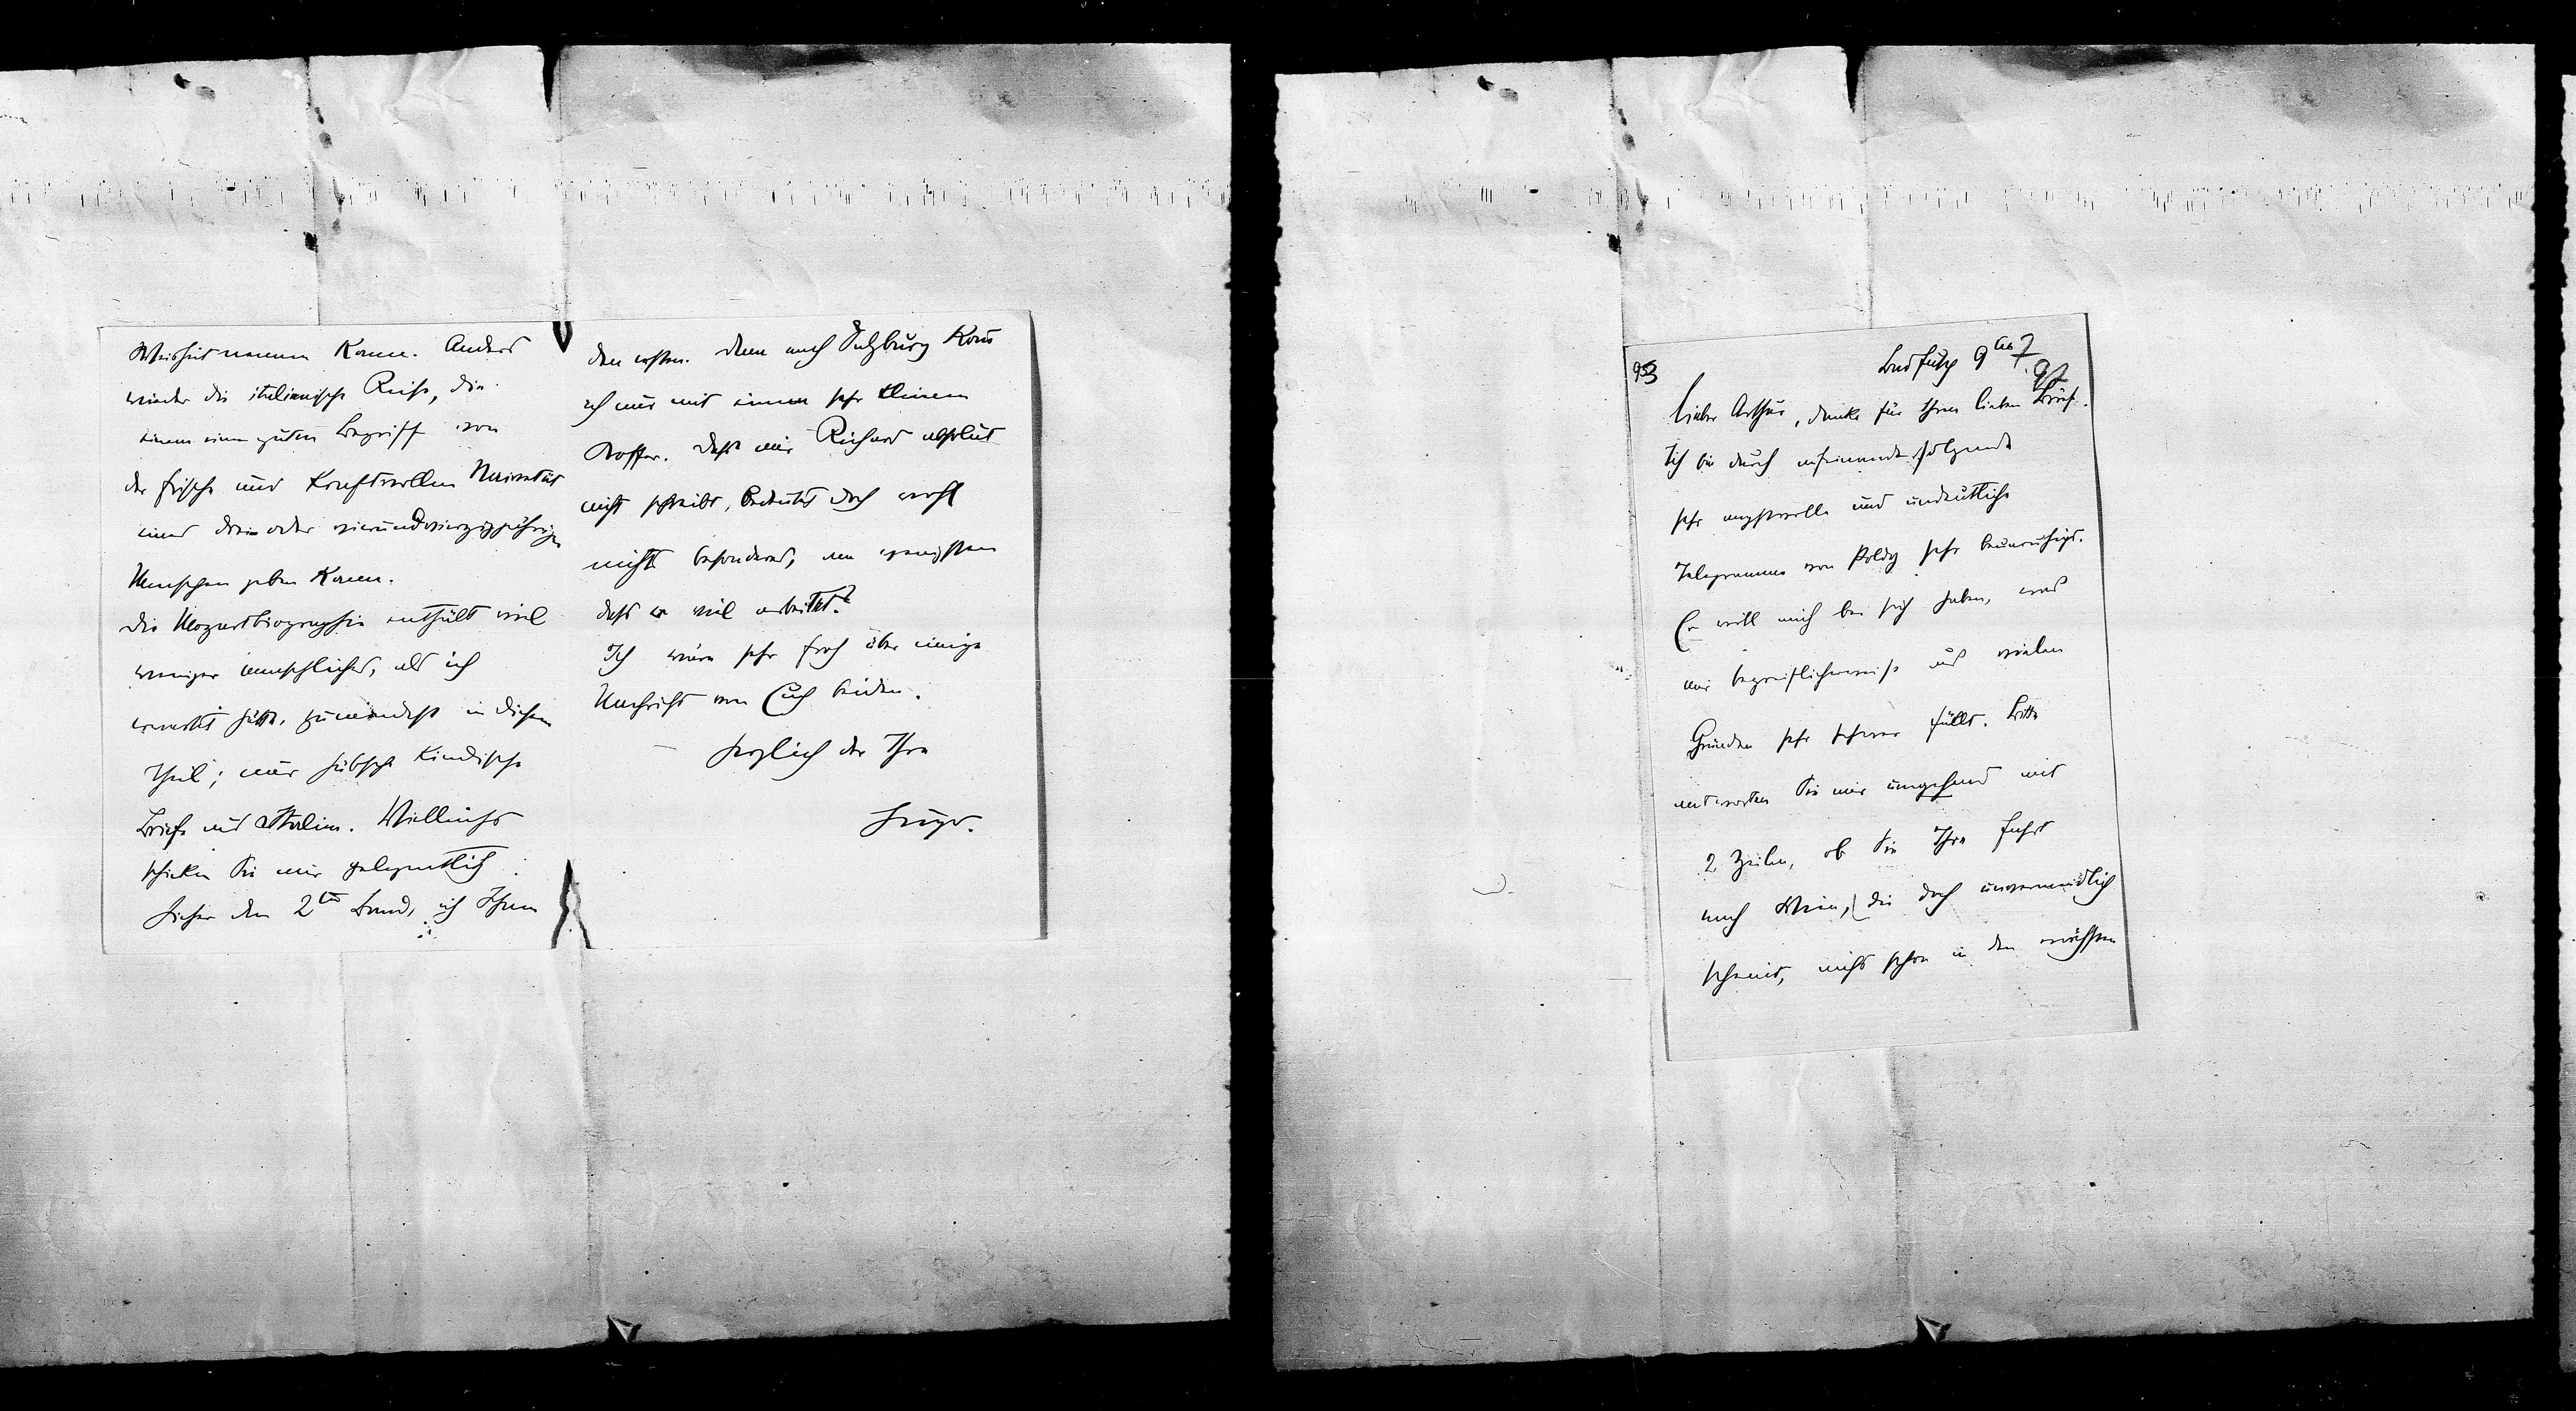 Weisheit nennen kann. Anders
wieder die italienische Reise, die
einem einen guten Begriff von
der frischen und kraftvollen Naivetät
eines drei- oder vierundvierzigjährigen
Menschen geben kann.
Die Mozartbiographie enthält viel
weniger menschliches, als ich
erwartet hätte, zumindest in diesem
Theil; nur hübsche kindische
Briefe aus Italien. Vielleicht
schicken Sie mir gelegentlich
hieher den 2ten Band, ich Ihnen
den ersten. Denn nach Salzburg kom
ich nur mit einem sehr kleinen
Koffer. Dass mir Richard absolut
nicht schreibt, bedeutet doch wohl
nichts besonderes, am wenigsten
dass er viel arbeitet?
Ich wäre sehr froh über einige
Nachricht von Euch beiden.
Herzlich der Ihre
Hugo.
93
Bad Fusch 9ten 7.
97
lieber Arthur, danke für Ihren lieben Brief.
Ich bin durch aufeinanderfolgende
sehr angstvolle und undeutliche
Telegramme von Poldy sehr beunruhigt.
Er will mich bei sich haben, was
mir begreiflicherweise aus vielen
Gründen sehr schwer fällt. Bitte
antworten Sie mir umgehend mit
2 Zeilen, ob Sie Ihre Fahrt
nach Wien, (die doch unvermeidlich
scheint, nicht schon in den nächsten